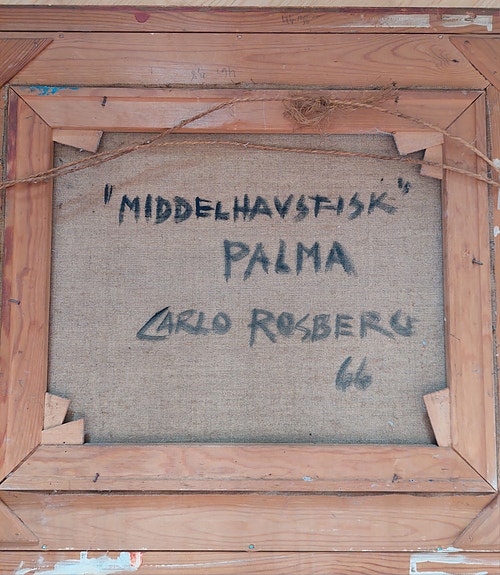 "MIDDELHAVSFISK"
PALMA
CARLO ROSBERG
66